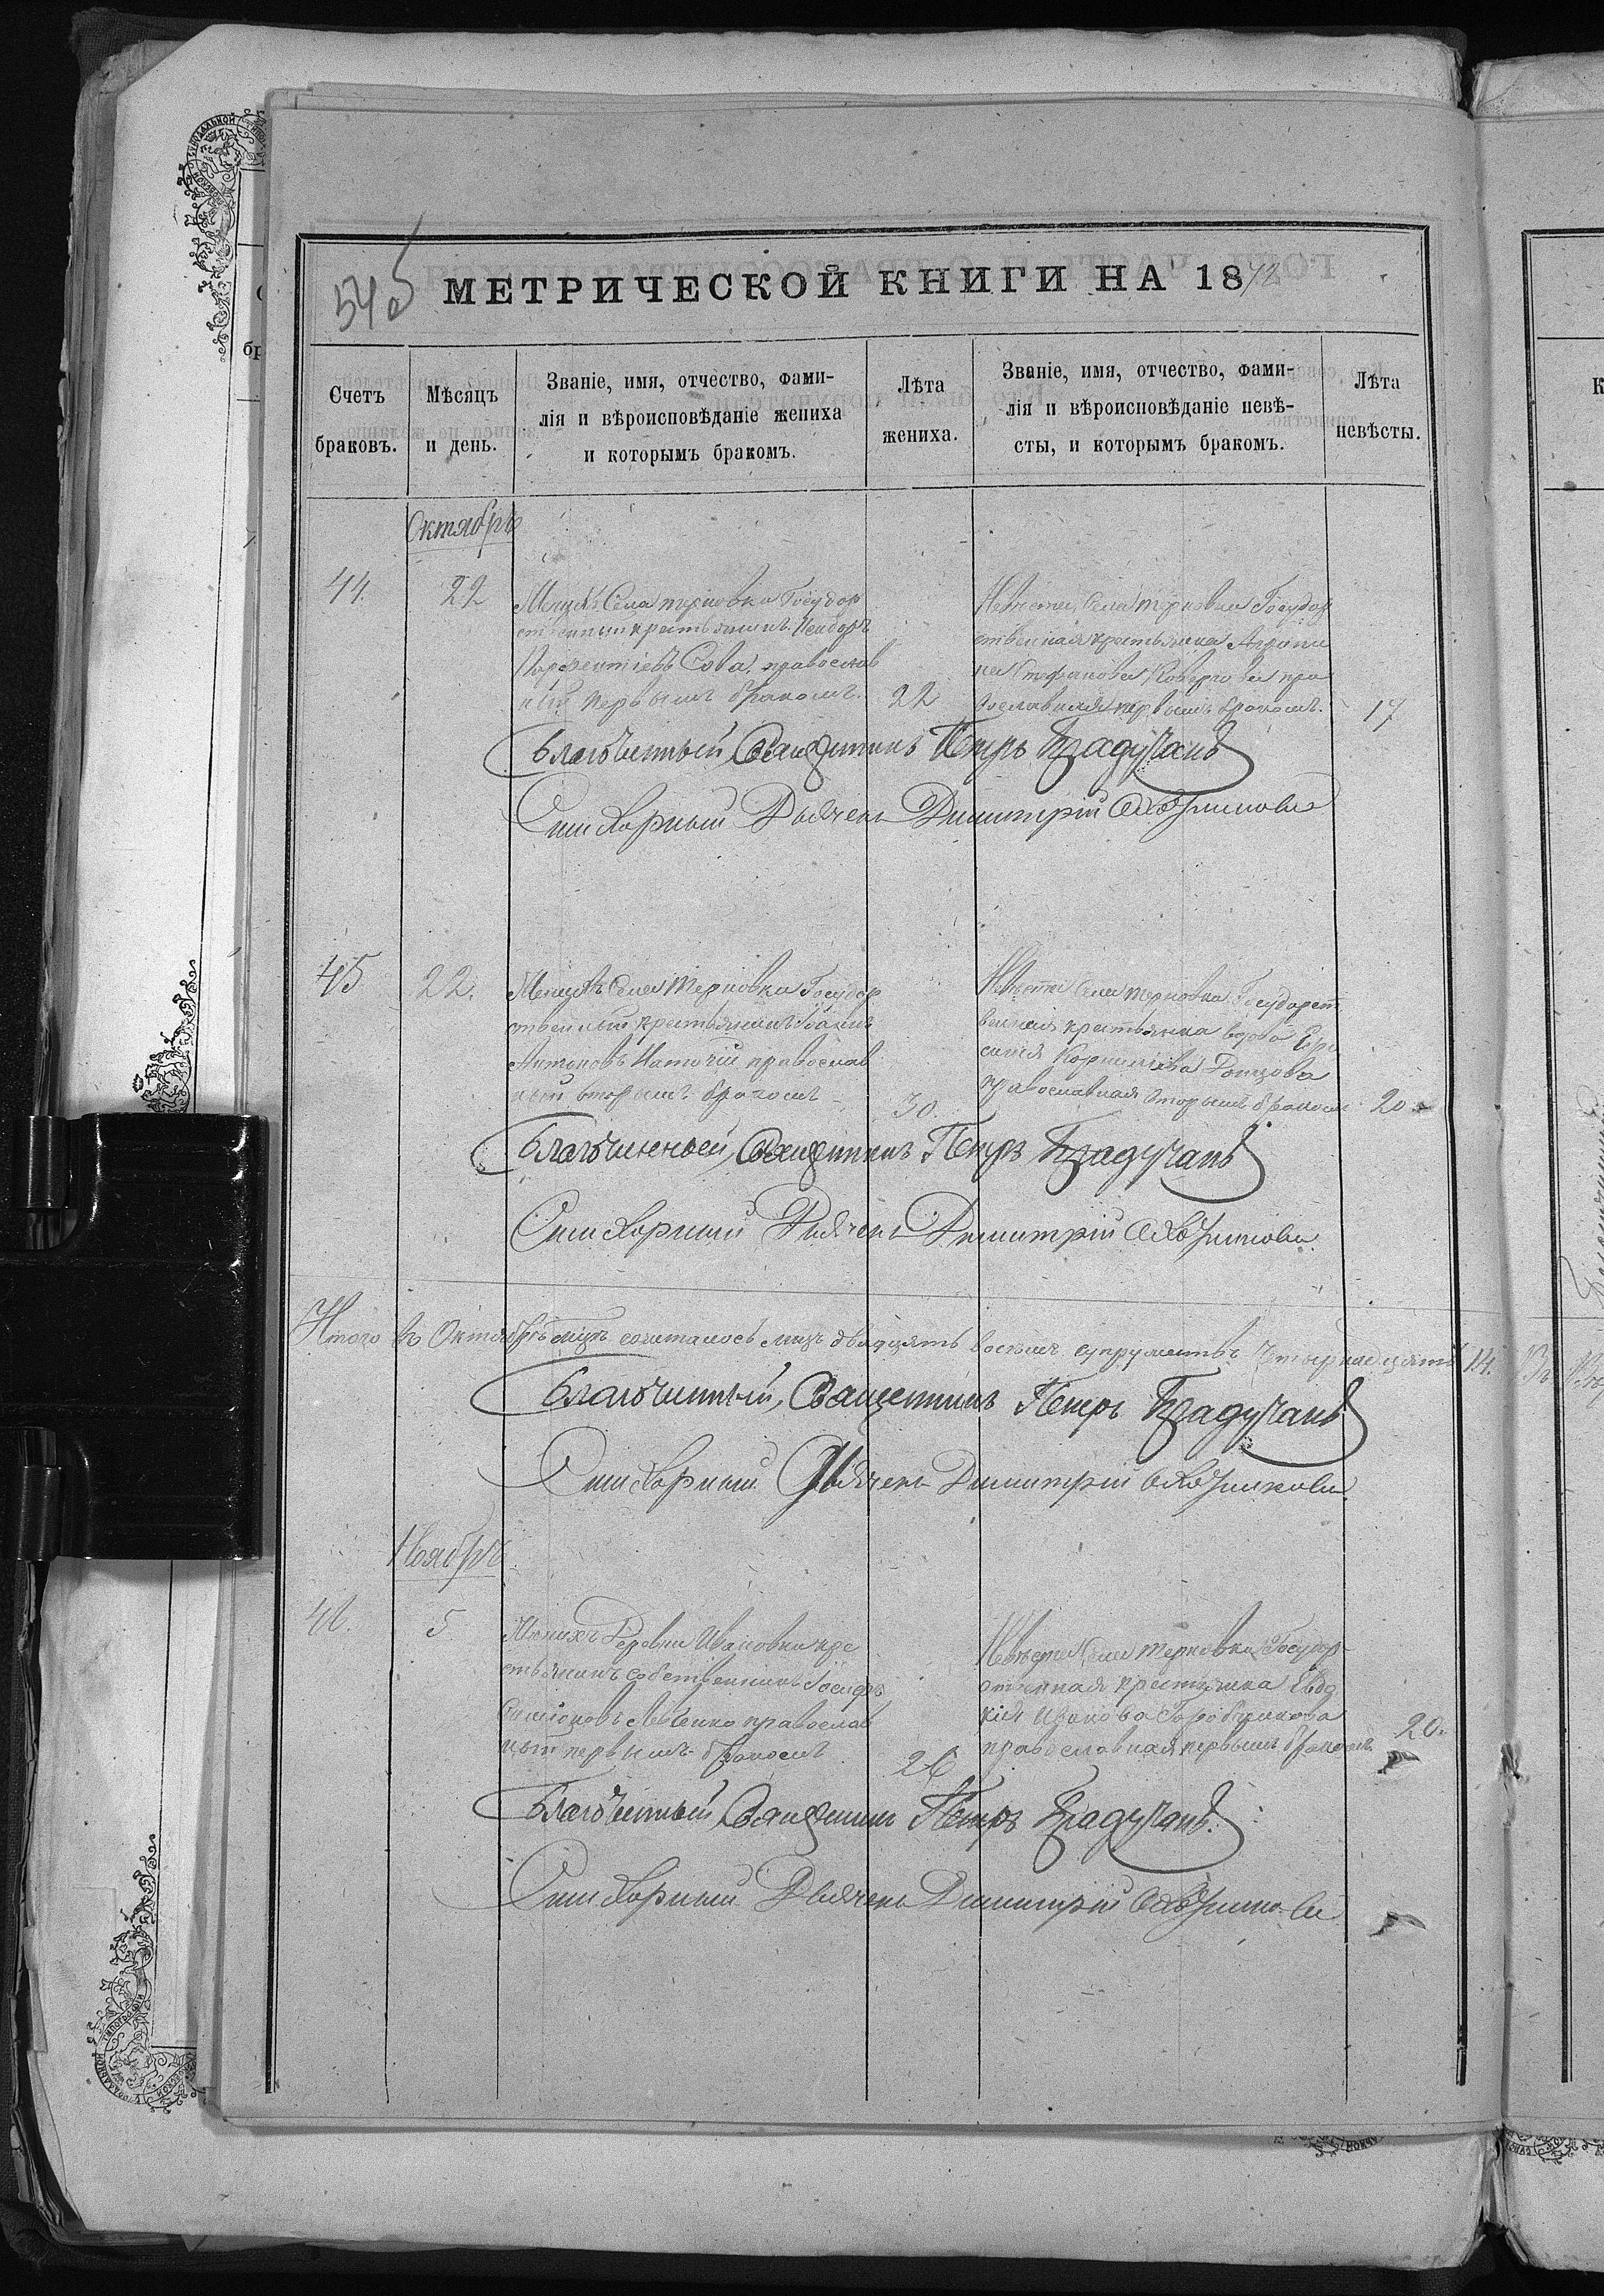 545
МЕТРИЧЕСКОЙ КНИГИ НА 1872
Счетъ браковъ.
Мѣсяцъ и день.
Званіе, имя, отчество, фами-
лія и вѣроисповѣданіе жениха
и которымъ бракомъ.
Лѣта жениха.
Званіе, имя, отчество, фами-
лія и вѣроисповѣданіе невѣ-
сты, и которымъ бракомъ.
Лѣта невѣсты.
Октябрь
44
22
Женихъ Села Терновки Государ
ственный крестьянинъ
Сова, православ
ный первымъ бракомъ.
22
Невѣста Села Терновки Государ
ственная крестьянка Агрипи
на Стефанова пра
вославная первымъ бракомъ.
17
Благочинный, Священникъ Петръ
Дьячекъ Димитрій
45
22.
Женихъ Села Терновки Государ
ственный крестьянинъ Іоаннъ
Антоновъ православ
ный вторымъ бракомъ
30
Невѣста Села Терновки Государст
венная крестьянка вдова
Корниліева Донцова
православная вторымъ бракомъ
20
Благочинный, Священникъ Петръ
Дьячекъ Димитрій
Итого въ Октябрѣ мцѣ сочеталось лицъ двадцять восемь супружествъ Четырнадцять 14.
Благочинный, Священникъ Петръ
Дьячекъ Димитрій
Ноябрь
46.
5
Женихъ Деревни Ивановки кре
стьянинъ собственникъ Іосифъ
Симіоновъ Левченко православ
ный первымъ бракомъ
26
Невѣста Села Терновки Государ
ственная крестьянка Евдо
кія Иванова
православная первымъ бракомъ
20.
Благочинный Священникъ Петръ
Дьячекъ Димитрій